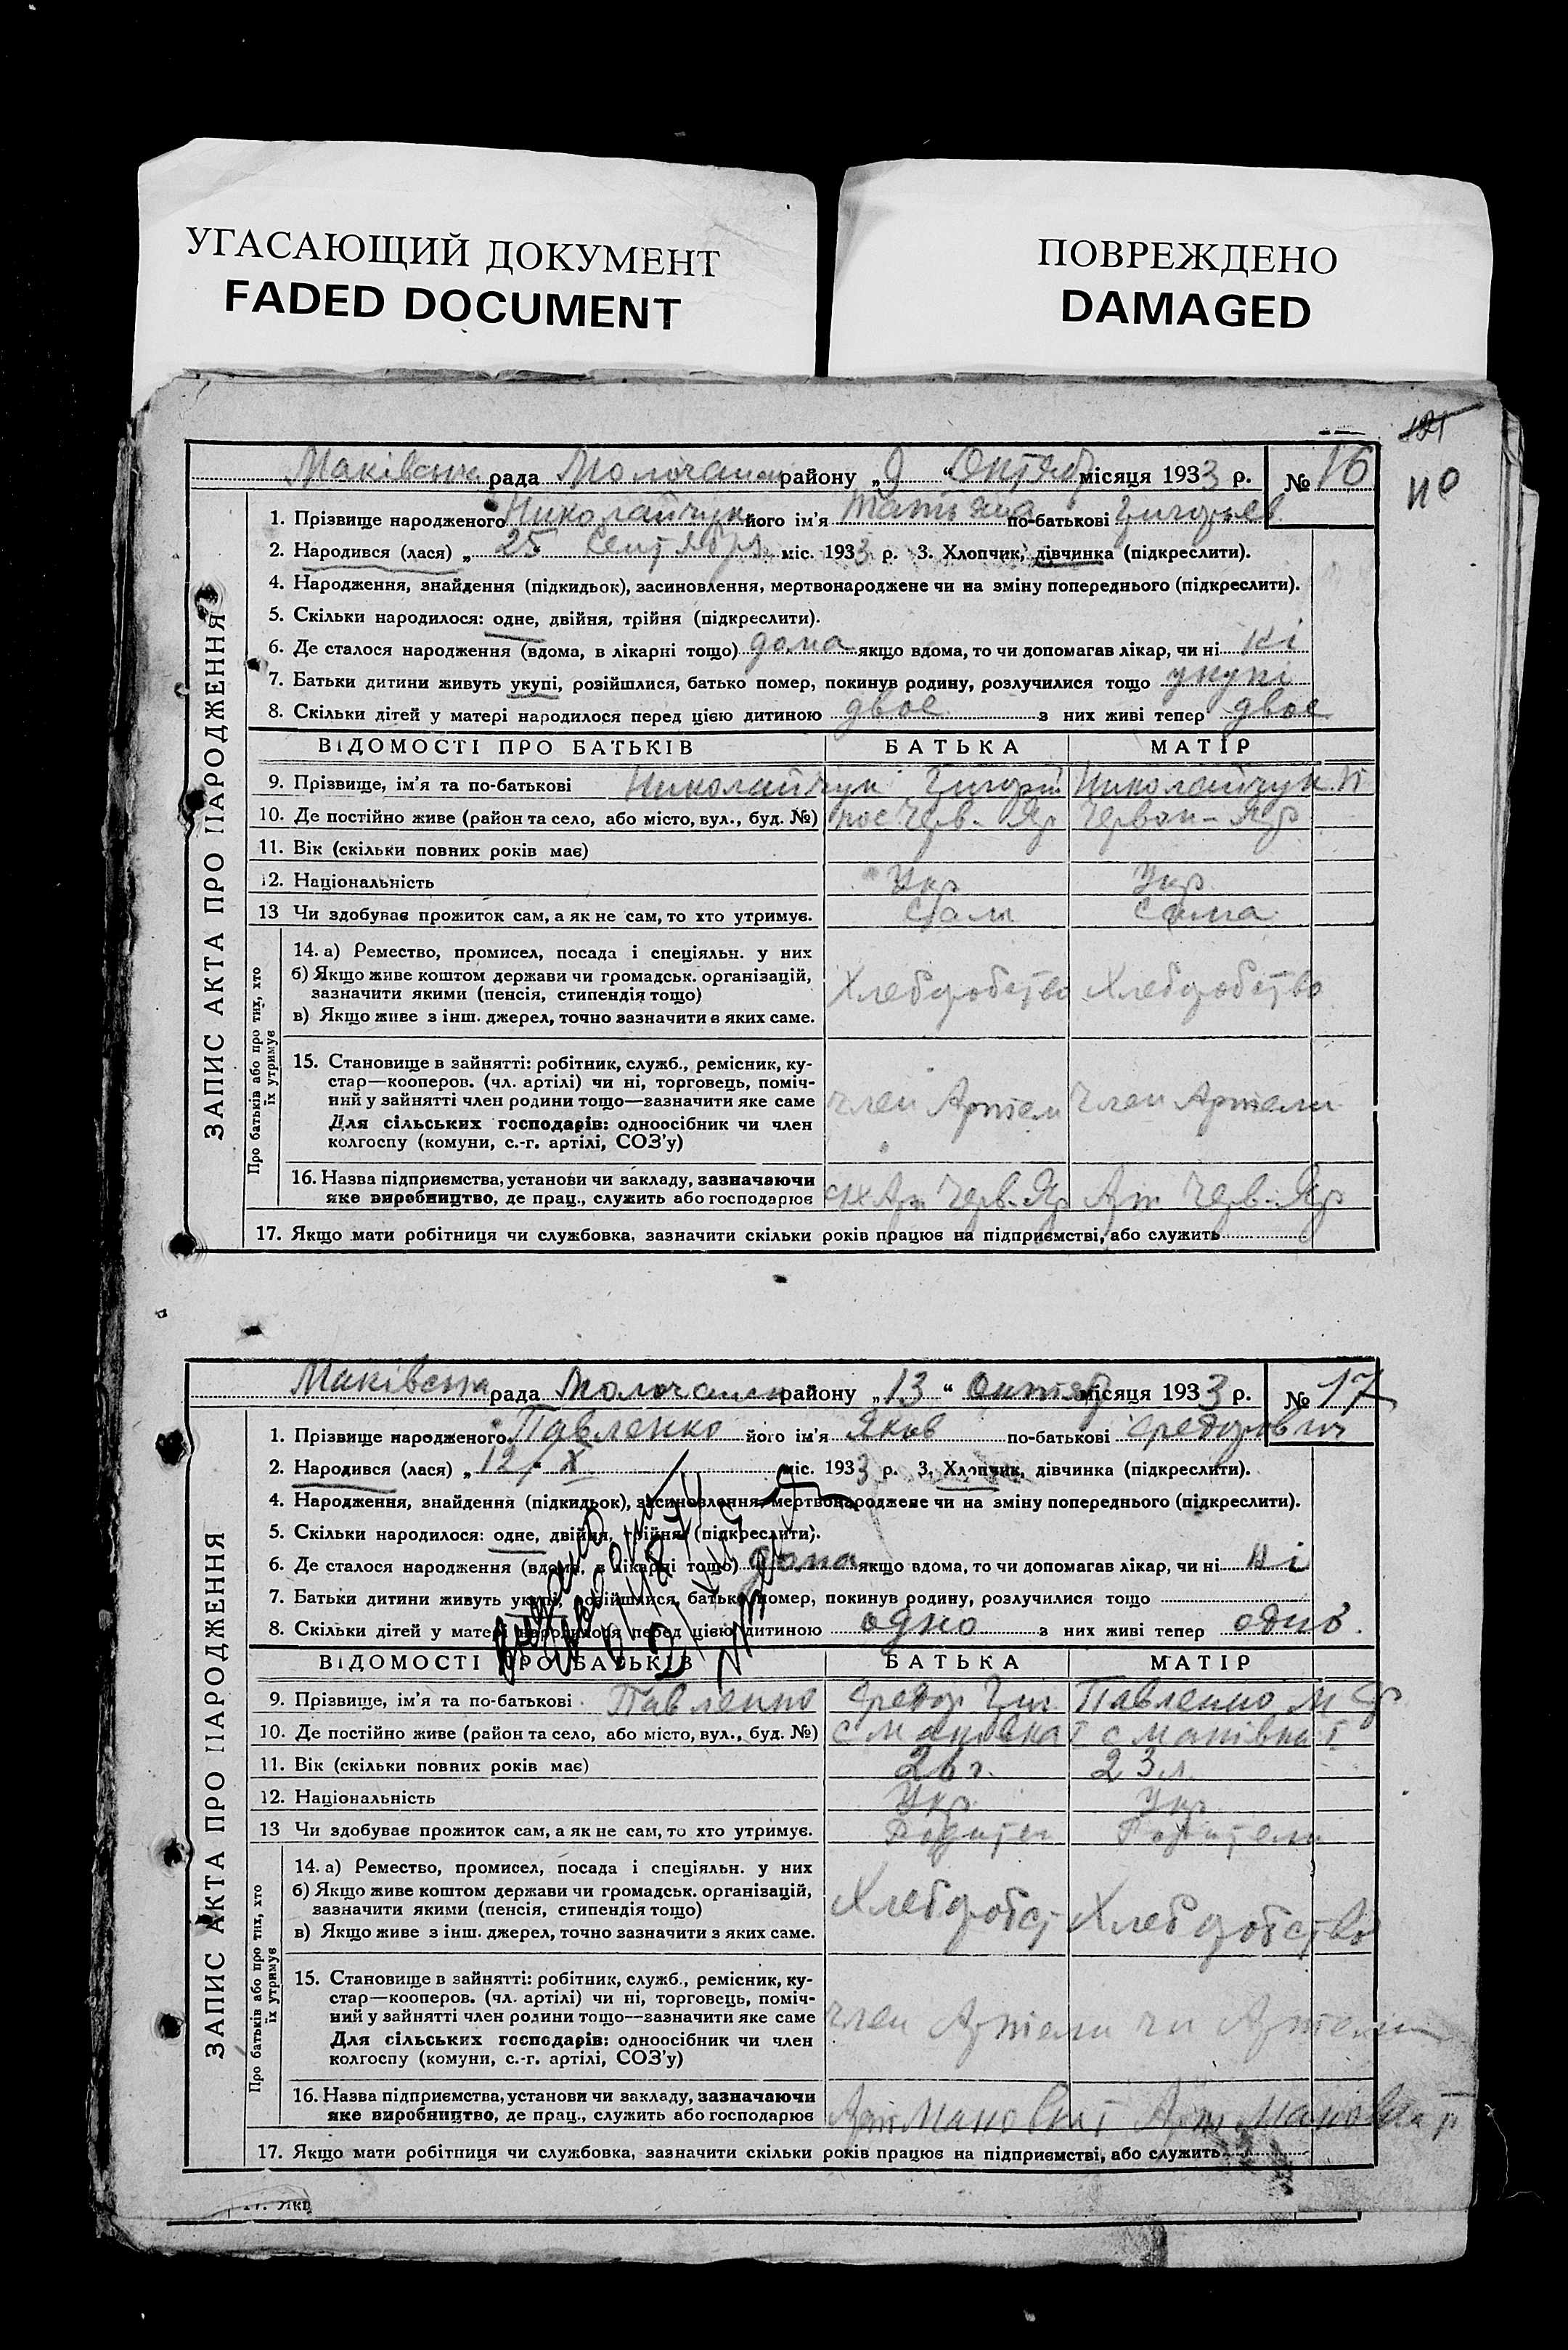 УГАСАЮЩИЙ ДОКУМЕНТ
FADED DOCUMENT
ПОВРЕЖДЕНО
DAMAGED
121
110
Маківська рада Молочанск району „9“ Октябр місяця 1933 р. № 16
ЗАПИС АКТА ПРО НАРОДЖЕННЯ
1. Прізвище народженого Николайчук його ім'я Татьяна по-батькові Григорьев
2. Народився (лася) „25 Сентября міс. 1933 р. 3. Хлопчик, дівчинка (підкреслити).
4. Народження, знайдення (підкидьок), засиновлення, мертвонароджене чи на зміну попереднього (підкреслити).
5. Скільки народилося: одне, двійня, трійня (підкреслити).
6. Де сталося народження (вдома, в лікарні тощо) дома якщо вдома, то чи допомагав лікар, чи ні ні
7. Батьки дитини живуть укупі, розійшлися, батько помер, покинув родину, розлучилися тощо укупі
8. Скільки дітей у матері народилося перед цією дитиною двое з них живі тепер двое
ВІДОМОСТІ ПРО БАТЬКІВ БАТЬКА МАТІР
9. Прізвище, ім'я та по-батькові Николайчук Григорій Николайчук П
10. Де постійно живе (район та село, або місто, вул., буд. №) пос Черв-Яр Червон-Яр
11. Вік (скільки повних років має)
12. Національність Укр Укр
13 Чи здобував прожиток сам, а як не сам, то хто утримує. сам сама
Про батьків або про тих, хто їх утримує
14. а) Ремество, промисел, посада і спеціяльн. у них
б) Якщо живе коштом держави чи громадськ. організацій,
зазначити якими (пенсія, стипендія тощо) Хлеборобство Хлеборобство
в) Якщо живе з інш. джерел, точно зазначити в яких саме.
15. Становище в зайнятті: робітник, служб., ремісник, ку-
стар—кооперов. (чл. артілі) чи ні, торговець, поміч-
ний у зайнятті член родини тощо—зазначити яке саме член Артели член Артели
Для сільських господарів: одноосібник чи член
колгоспу (комуни, с.-г. артілі, СОЗ'у)
16. Назва підприємства, установи чи закладу, зазначаючи
яке виробництво, де прац., служить або господарює схАр Черв-Яр Ар Черв-Яр
17. Якщо мати робітниця чи службовка, зазначити скільки років працює на підприємстві, або служить
Маківська рада Молочанск району „13“ Октябр місяця 1933 р. № 17
ЗАПИС АКТА ПРО НАРОДЖЕННЯ
1. Прізвище народженого Павленко його ім'я Яков по-батькові Федорович
2. Народився (лася) „12 X міс. 1933 р. 3. Хлопчик, дівчинка (підкреслити).
4. Народження, знайдення (підкидьок), засиновлення, мертвонароджене чи на зміну попереднього (підкреслити).
5. Скільки народилося: одне, двійня, трійня (підкреслити).
6. Де сталося народження (вдома, в лікарні тощо) дома якщо вдома, то чи допомагав лікар, чи ні ні
7. Батьки дитини живуть укупі, розійшлися, батько помер, покинув родину, розлучилися тощо
8. Скільки дітей у матері народилося перед цією дитиною одно з них живі тепер одно
ВІДОМОСТІ ПРО БАТЬКІВ БАТЬКА МАТІР
9. Прізвище, ім'я та по-батькові Павленко Федор Гри Павленко М Ф
10. Де постійно живе (район та село, або місто, вул., буд. №) с Маковка I с Маківка I
11. Вік (скільки повних років має) 26 г. 23 л.
12. Національність Укр Укр
13 Чи здобував прожиток сам, а як не сам, то хто утримує. Родител Родители
Про батьків або про тих, хто їх утримує
14. а) Ремество, промисел, посада і спеціяльн. у них
б) Якщо живе коштом держави чи громадськ. організацій,
зазначити якими (пенсія, стипендія тощо) Хлеборобст Хлеборобство
в) Якщо живе з інш. джерел, точно зазначити з яких саме.
15. Становище в зайнятті: робітник, служб., ремісник, ку-
стар—кооперов. (чл. артілі) чи ні, торговець, поміч-
ний у зайнятті член родини тощо—зазначити яке саме член Артели чл Артели
Для сільських господарів: одноосібник чи член
колгоспу (комуни, с.-г. артілі, СОЗ'у)
16. Назва підприємства, установи чи закладу, зазначаючи
яке виробництво, де прац., служить або господарює Арт Маковка I Арт Маковка
17. Якщо мати робітниця чи службовка, зазначити скільки років працює на підприємстві, або служить
17. Якщ